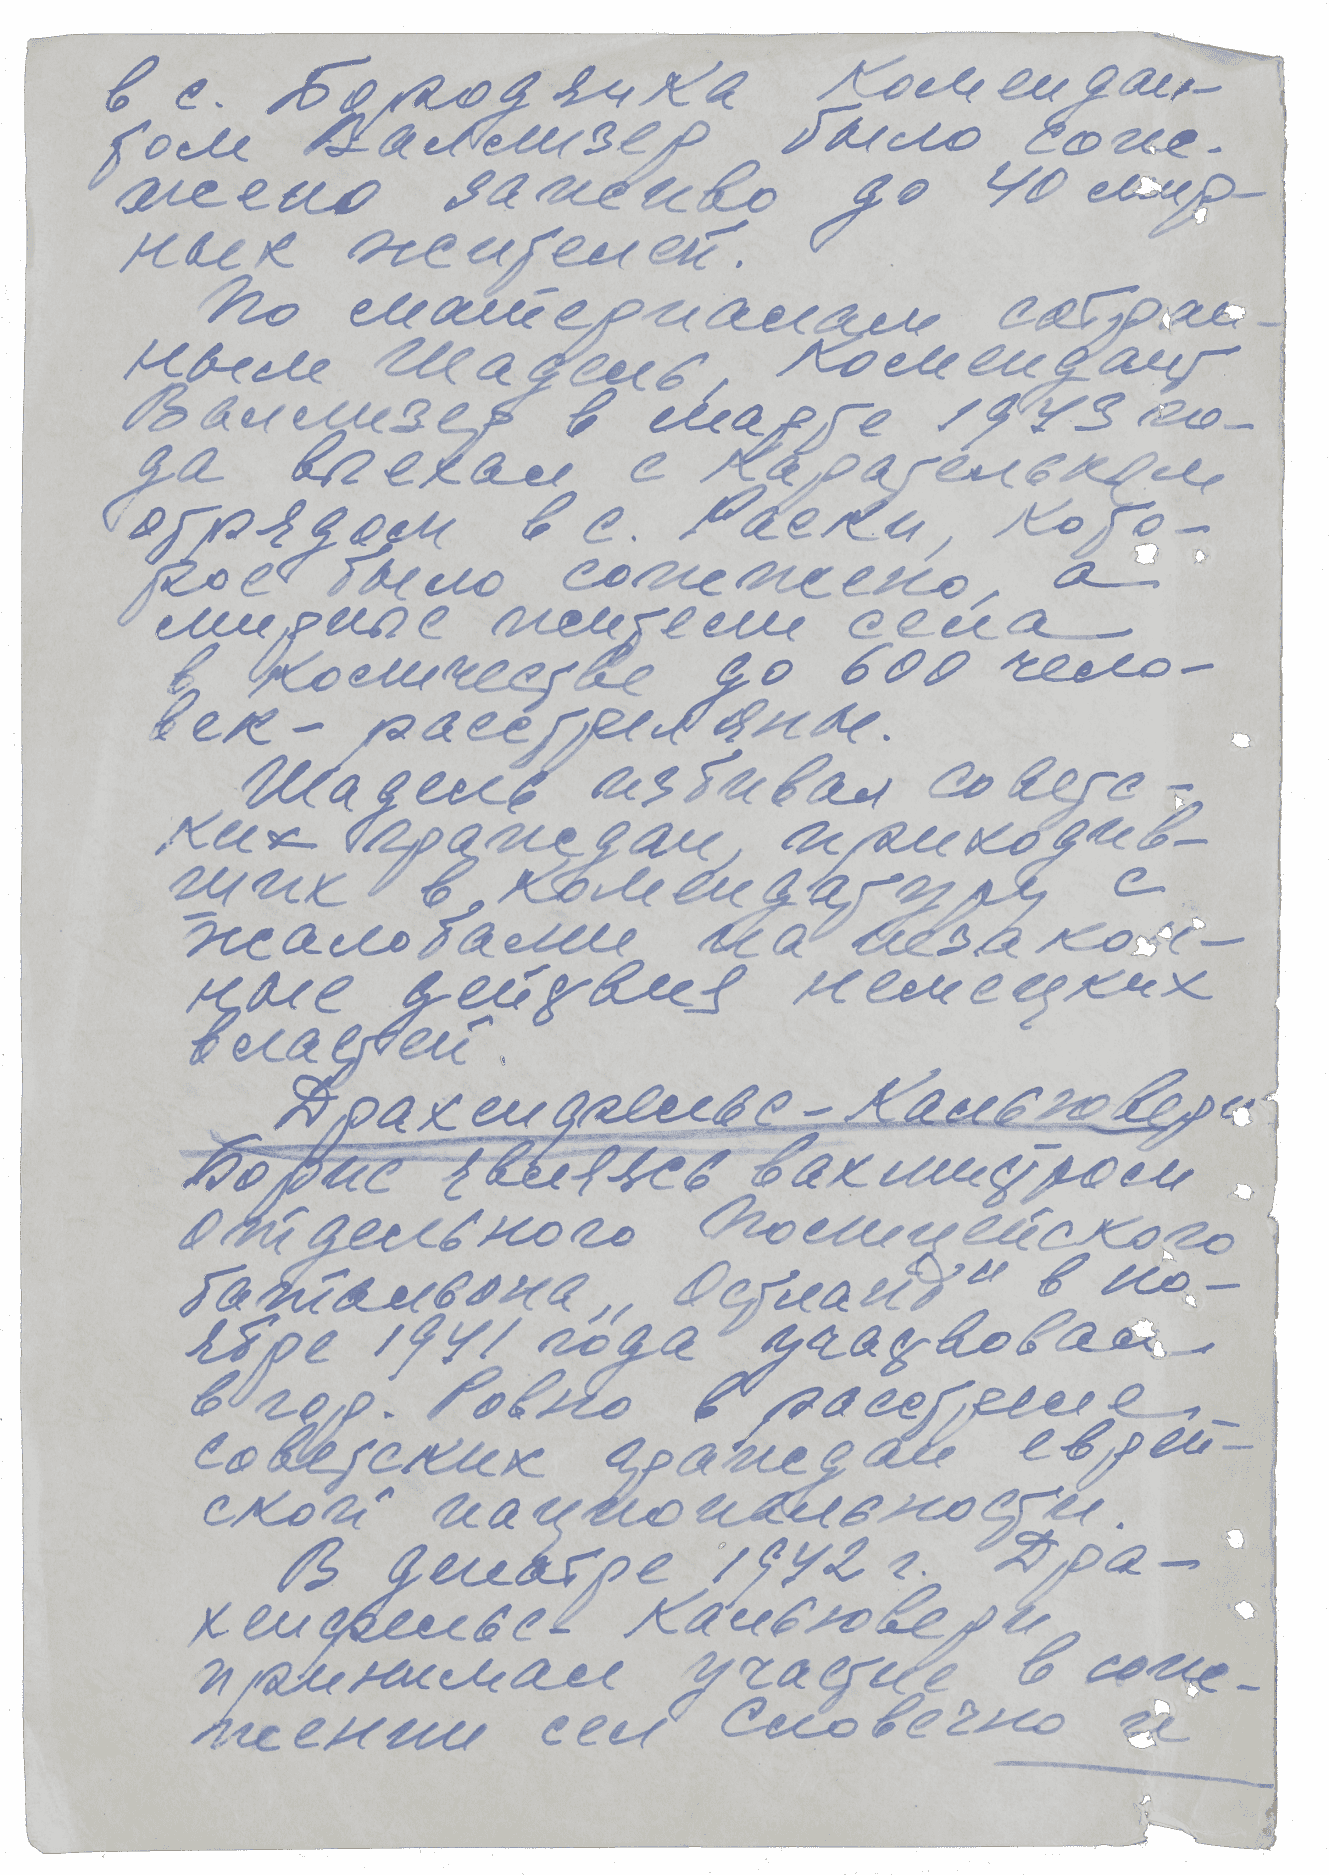 в с. Бородянка комендан-
том Валлизер было сож-
жено заживо до 40 мир-
ных жителей.
По материалам собран-
ным Шадель, комендант
Валлизер в марте 1943 го-
да выехал с карательным
отрядом в с. Раски, кото-
рое было сожжено, а
мирные жители села
в количестве до 600 чело-
век - расстреляны.
Шадель избивал советс-
ких граждан, приходив-
ших в комендатуру с
жалобами на незакон-
ные действия немецких
властей.
Драхенфельс-Кальювери
Борис являясь вахмистром
отдельного полицейского
батальона „Остланд" в но-
ябре 1941 года участвовал
в гор. Ровно в расстреле
советских граждан еврей-
ской национальности.
В декабре 1942 г. Дра-
хенфельс-Кальювери
принимал участие в сож-
жении сел Словечно и